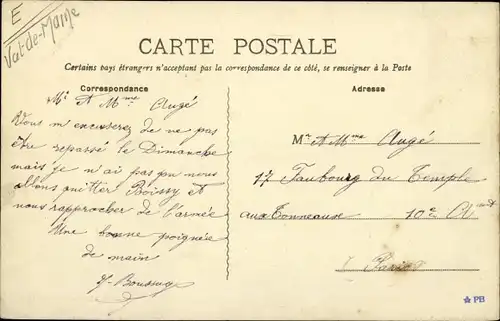 E
Val-de-Marne
CARTE POSTALE
Certains pays étrangers n'acceptant pas la correspondance de ce côté, se renseigner à la Poste
Correspondance
Mr & Mme Augé
Vous m'excuserez de ne pas
être repassé le Dimanche
mais je n'ai pas pu nous
allons quitter Boissy et
nous rapprocher de l'armée
Une bonne poignée
de main
Adresse
Mr & Mme Augé
17 Faubourg du Temple
aux Tonneaux 10e Art
Paris
PB